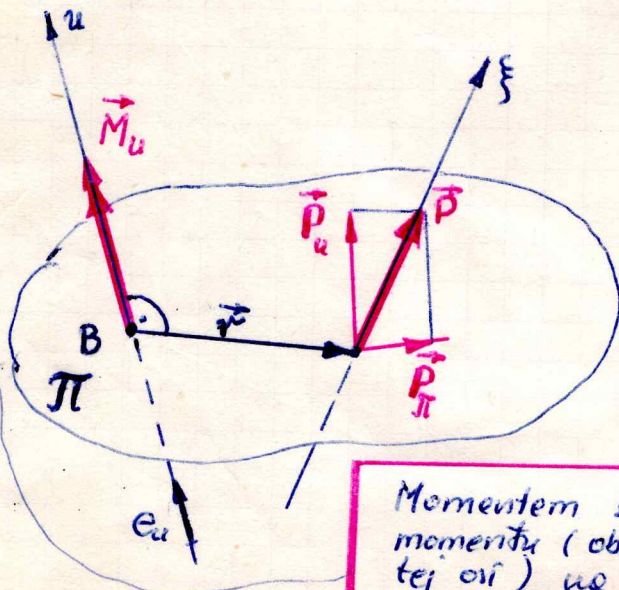 u
ξ
M⃗u
P⃗u
P⃗
r⃗
B
P⃗π
π
eu
Momentem
momentu (ob
tej osi) na